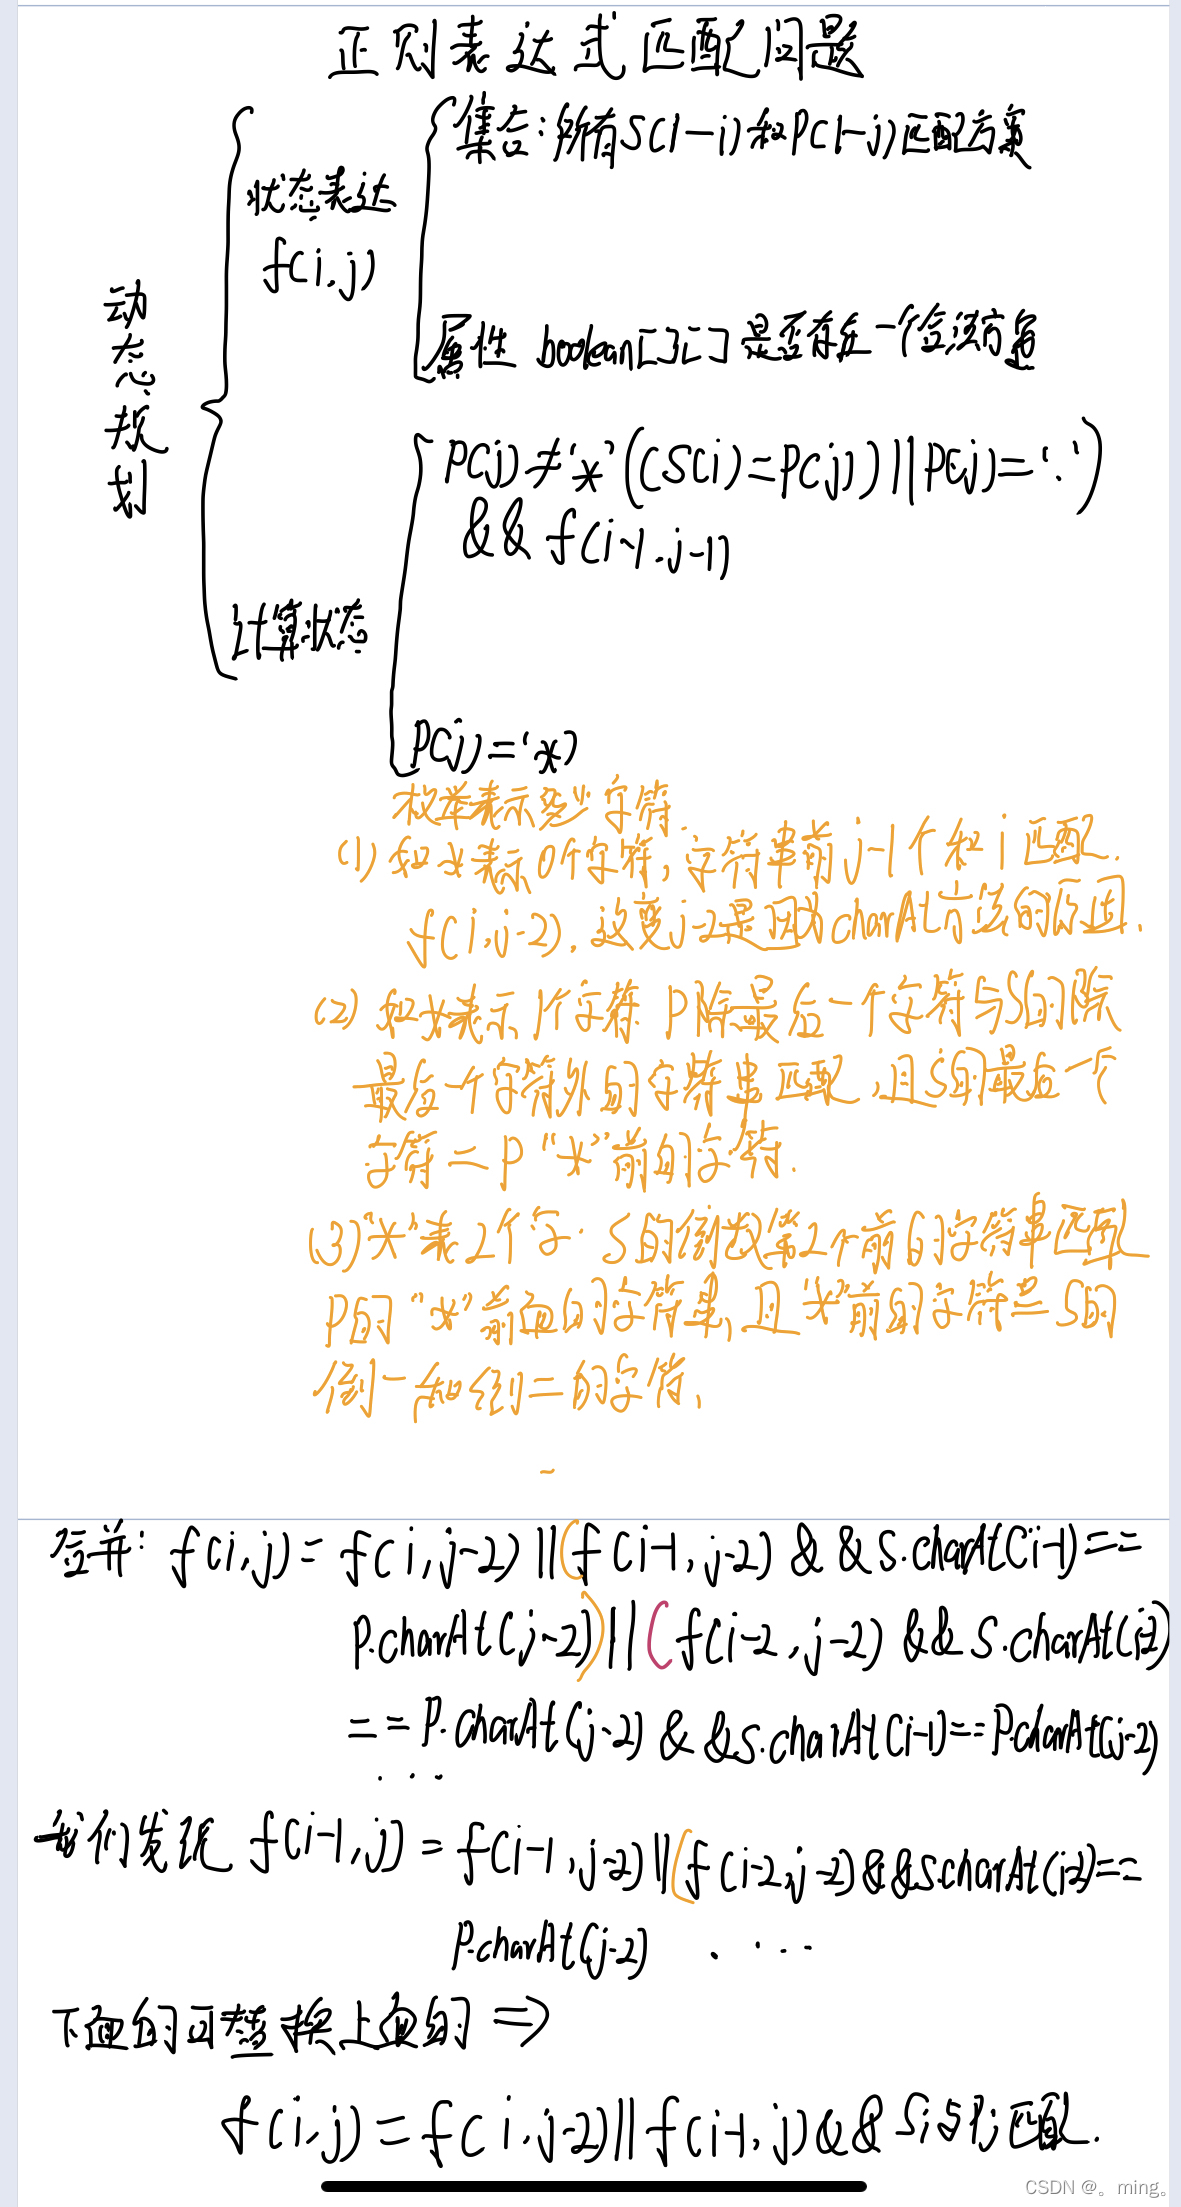 正则表达式匹配问题
动态规划
状态表达
f(i,j)
集合:所有S(1-i)和P(1-j)匹配方案
属性 boolean[][]是否存在一个合法方案
计算状态
P(j)≠'*'((S(i)=P(j))||P(j)='.')
&& f(i-1,j-1)
P(j)='*'
枚举表示多少字符.
(1) 如*表示0个字符,字符串前j-1个和i匹配.
f(i,j-2).这里j-2是因为charAt方法的原因.
(2) 如*表示1个字符 P除最后一个字符与S的除
最后一个字符外的字符串匹配,且S的最后一个
字符=P"*"前的字符.
(3)"*"表2个字. S的倒数第2个前的字符串匹配
P的"*"前面的字符串,且"*"前的字符=S的
倒一和倒二的字符.
合并: f(i,j)=f(i,j-2)||(f(i-1,j-2)&&S.charAt(i-1)==
P.charAt(j-2))||(f(i-2,j-2)&&S.charAt(i-2)
==P.charAt(j-2)&&S.charAt(i-1)==P.charAt(j-2)
...
我们发现 f(i-1,j)=f(i-1,j-2)||(f(i-2,j-2)&&S.charAt(i-2)==
P.charAt(j-2) ....
下面的可替换上面的 =>
f(i,j)=f(i,j-2)||f(i-1,j)&&Si与Pj匹配.
CSDN @。ming。